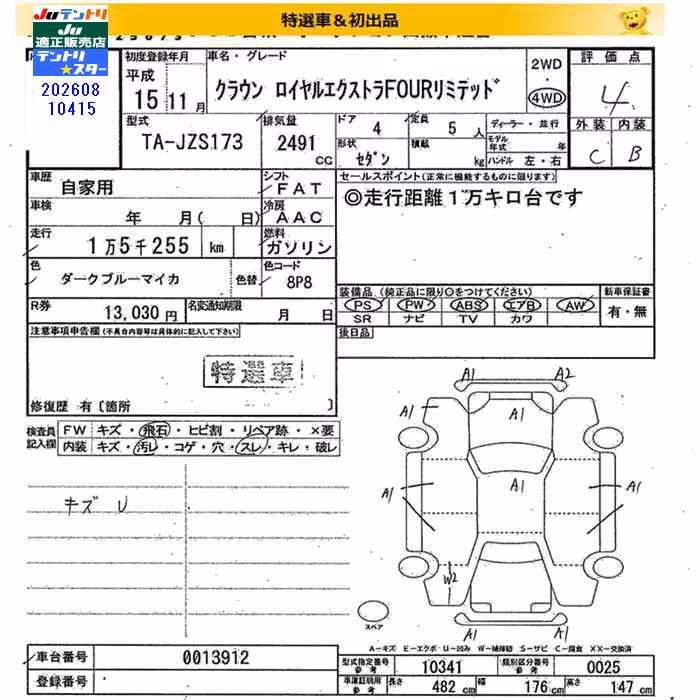 特選車＆初出品
JUテントリ
JU
適正販売店
テントリ
★スター
202608
10415
初度登録年月
平成
15 11月
車名・グレード
クラウン ロイヤルエクストラFOURリミテッド
2WD
・
4WD
評価点
4
外装 内装
C B
型式
TA-JZS173
排気量
2491
CC
ドア 4
形状
セダン
定員 5 人
積載
kg
ディーラー・並行
モデル年式 年
ハンドル 左・右
車歴
自家用
シフト
FAT
車検
年 月( 日)
冷房
AAC
走行
1万5千255 km
燃料
ガソリン
色
ダークブルーマイカ
色替
色コード
8P8
R券
13,030円
名変通知期限
月 日
セールスポイント(正常に機能するものに限ります)
◎走行距離1万キロ台です
装備品(純正品に限り○をつけてください)
PS PW ABS エアB AW
SR ナビ TV カワ
新車保証書
有・無
後日品
注意事項申告欄(不具合内容等は具体的に記入して下さい)
特選車
修復歴 有〔箇所 〕
検査員
記入欄
FW キズ・飛石・ヒビ割・リペア跡・×要
内装 キズ・汚レ・コゲ・穴・スレ・キレ・破レ
キズ U
A1 A2
A1 A1 A1
A1 A1 A1
W2
A1 A1
スペア
A－キズ E－エクボ U－凹み W－補修跡 S－サビ C－腐食 XX－交換済
車台番号 0013912
登録番号
型式指定番号
参考
10341
類別区分番号
参考
0025
車庫証明用
参考
長さ 482 cm
幅 176 cm
高さ 147 cm